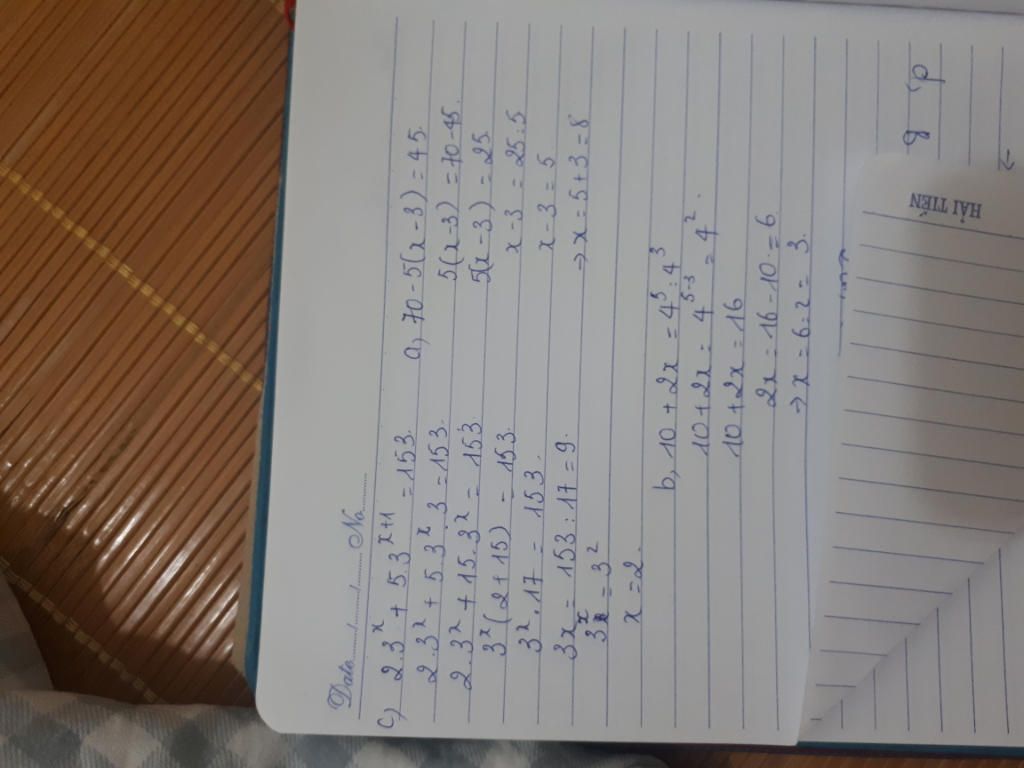 Date...../...../..... No..........
c) 2.3^x + 5.3^{x+1} = 153.
2.3^x + 5.3^x.3 = 153.
2.3^x + 15.3^x = 153
3^x (2+15) = 153.
3^x . 17 = 153.
3x = 153 : 17 = 9.
3^x = 3^2
x = 2.
a, 70 - 5(x-3) = 45.
5(x-3) = 70-45.
5(x-3) = 25.
x-3 = 25:5
x-3 = 5
→ x = 5+3 = 8
b, 10 + 2x = 4^5 : 4^3
10 + 2x = 4^{5-3} = 4^2.
10 + 2x = 16
2x = 16 - 10 = 6
→ x = 6:2 = 3.
d,
8
→
HẢI TIẾN